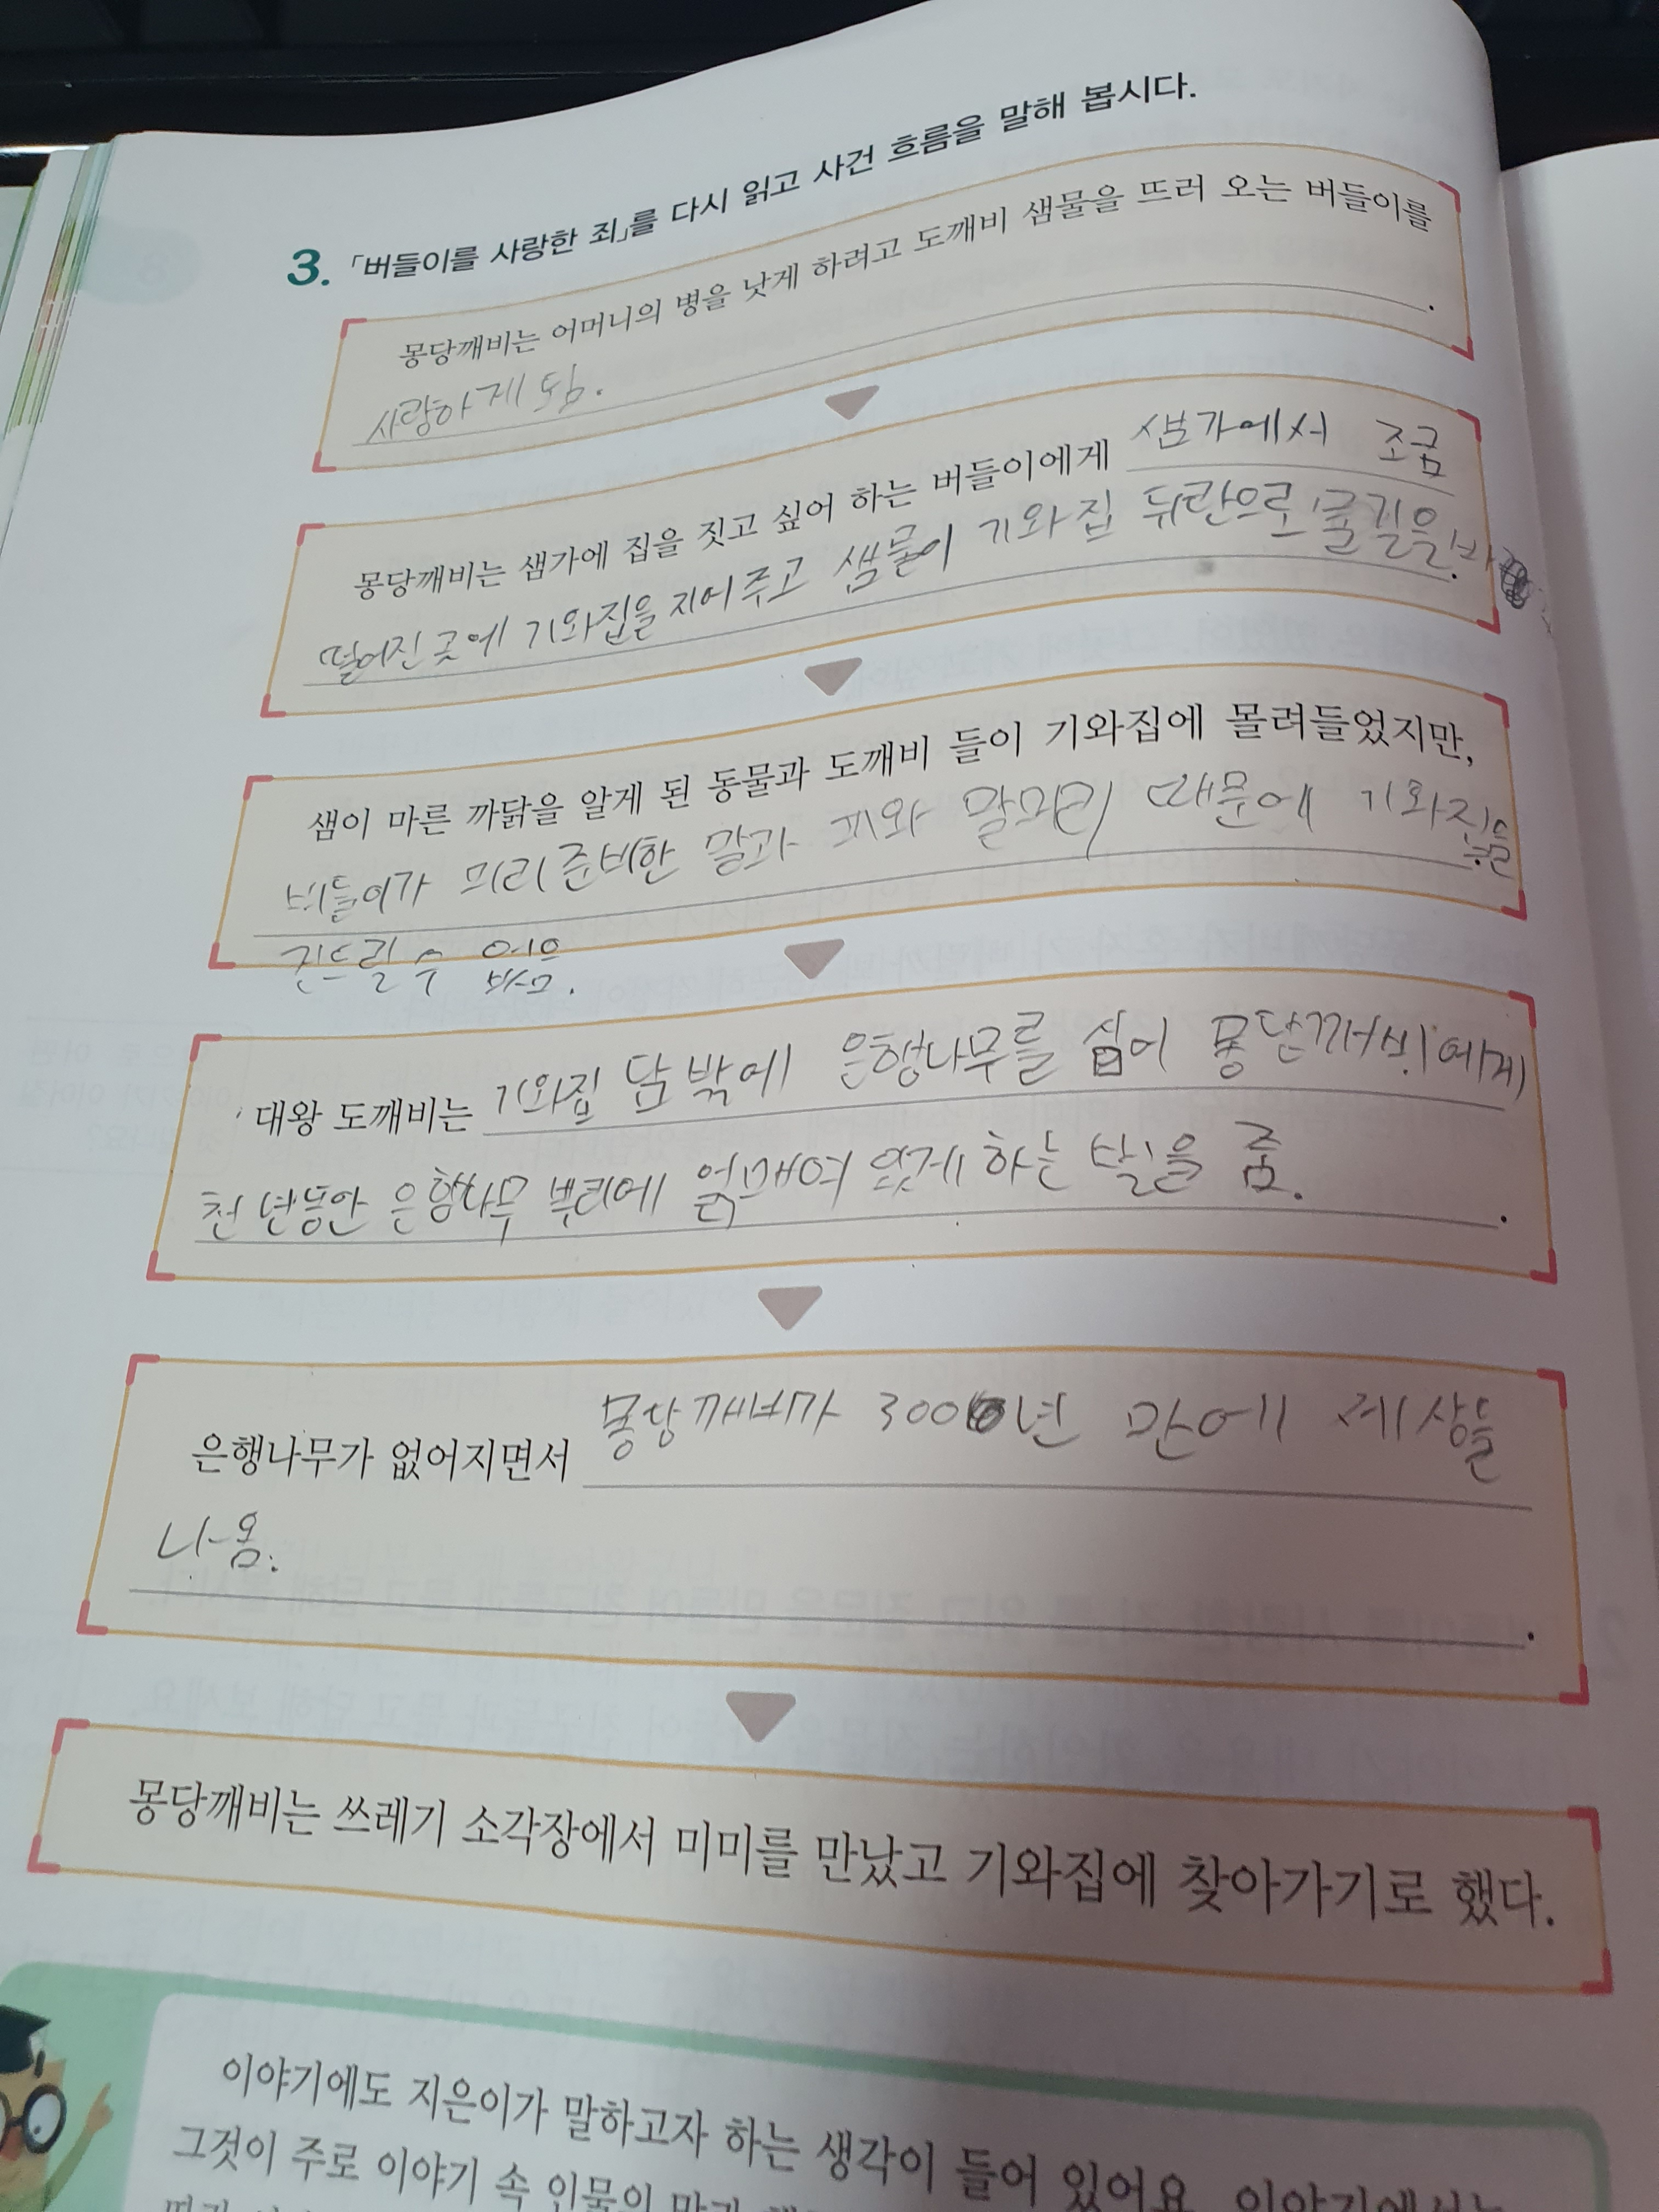 3. 「버들이를 사랑한 죄」를 다시 읽고 사건 흐름을 말해 봅시다.
몽당깨비는 어머니의 병을 낫게 하려고 도깨비 샘물을 뜨러 오는 버들이를
사랑하게 됨.
몽당깨비는 샘가에 집을 짓고 싶어 하는 버들이에게 샘가에서 조금
떨어진 곳에 기와집을 지어 주고 샘물이 기와집 뒤란으로 물길을 바
샘이 마른 까닭을 알게 된 동물과 도깨비 들이 기와집에 몰려들었지만,
버들이가 미리 준비한 말과 피와 말머리 때문에 기와집을
건드릴 수 없음.
대왕 도깨비는 기와집 담 밖에 은행나무를 심어 몽당깨비에게
천 년동안 은행나무 뿌리에 얽매여 있게 하는 벌을 줌.
은행나무가 없어지면서 몽당깨비가 300년 만에 세상을
나옴.
몽당깨비는 쓰레기 소각장에서 미미를 만났고 기와집에 찾아가기로 했다.
이야기에도 지은이가 말하고자 하는 생각이 들어 있어요. 이야기에서는
그것이 주로 이야기 속 인물의 말과